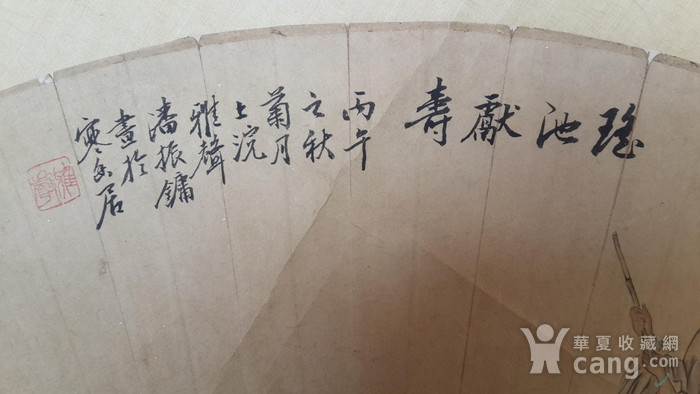 瑤池獻壽
丙午
之秋
菊月
上浣
雅聲
潘振鏞
畫於
居
雅聲
華夏收藏網
cang.com